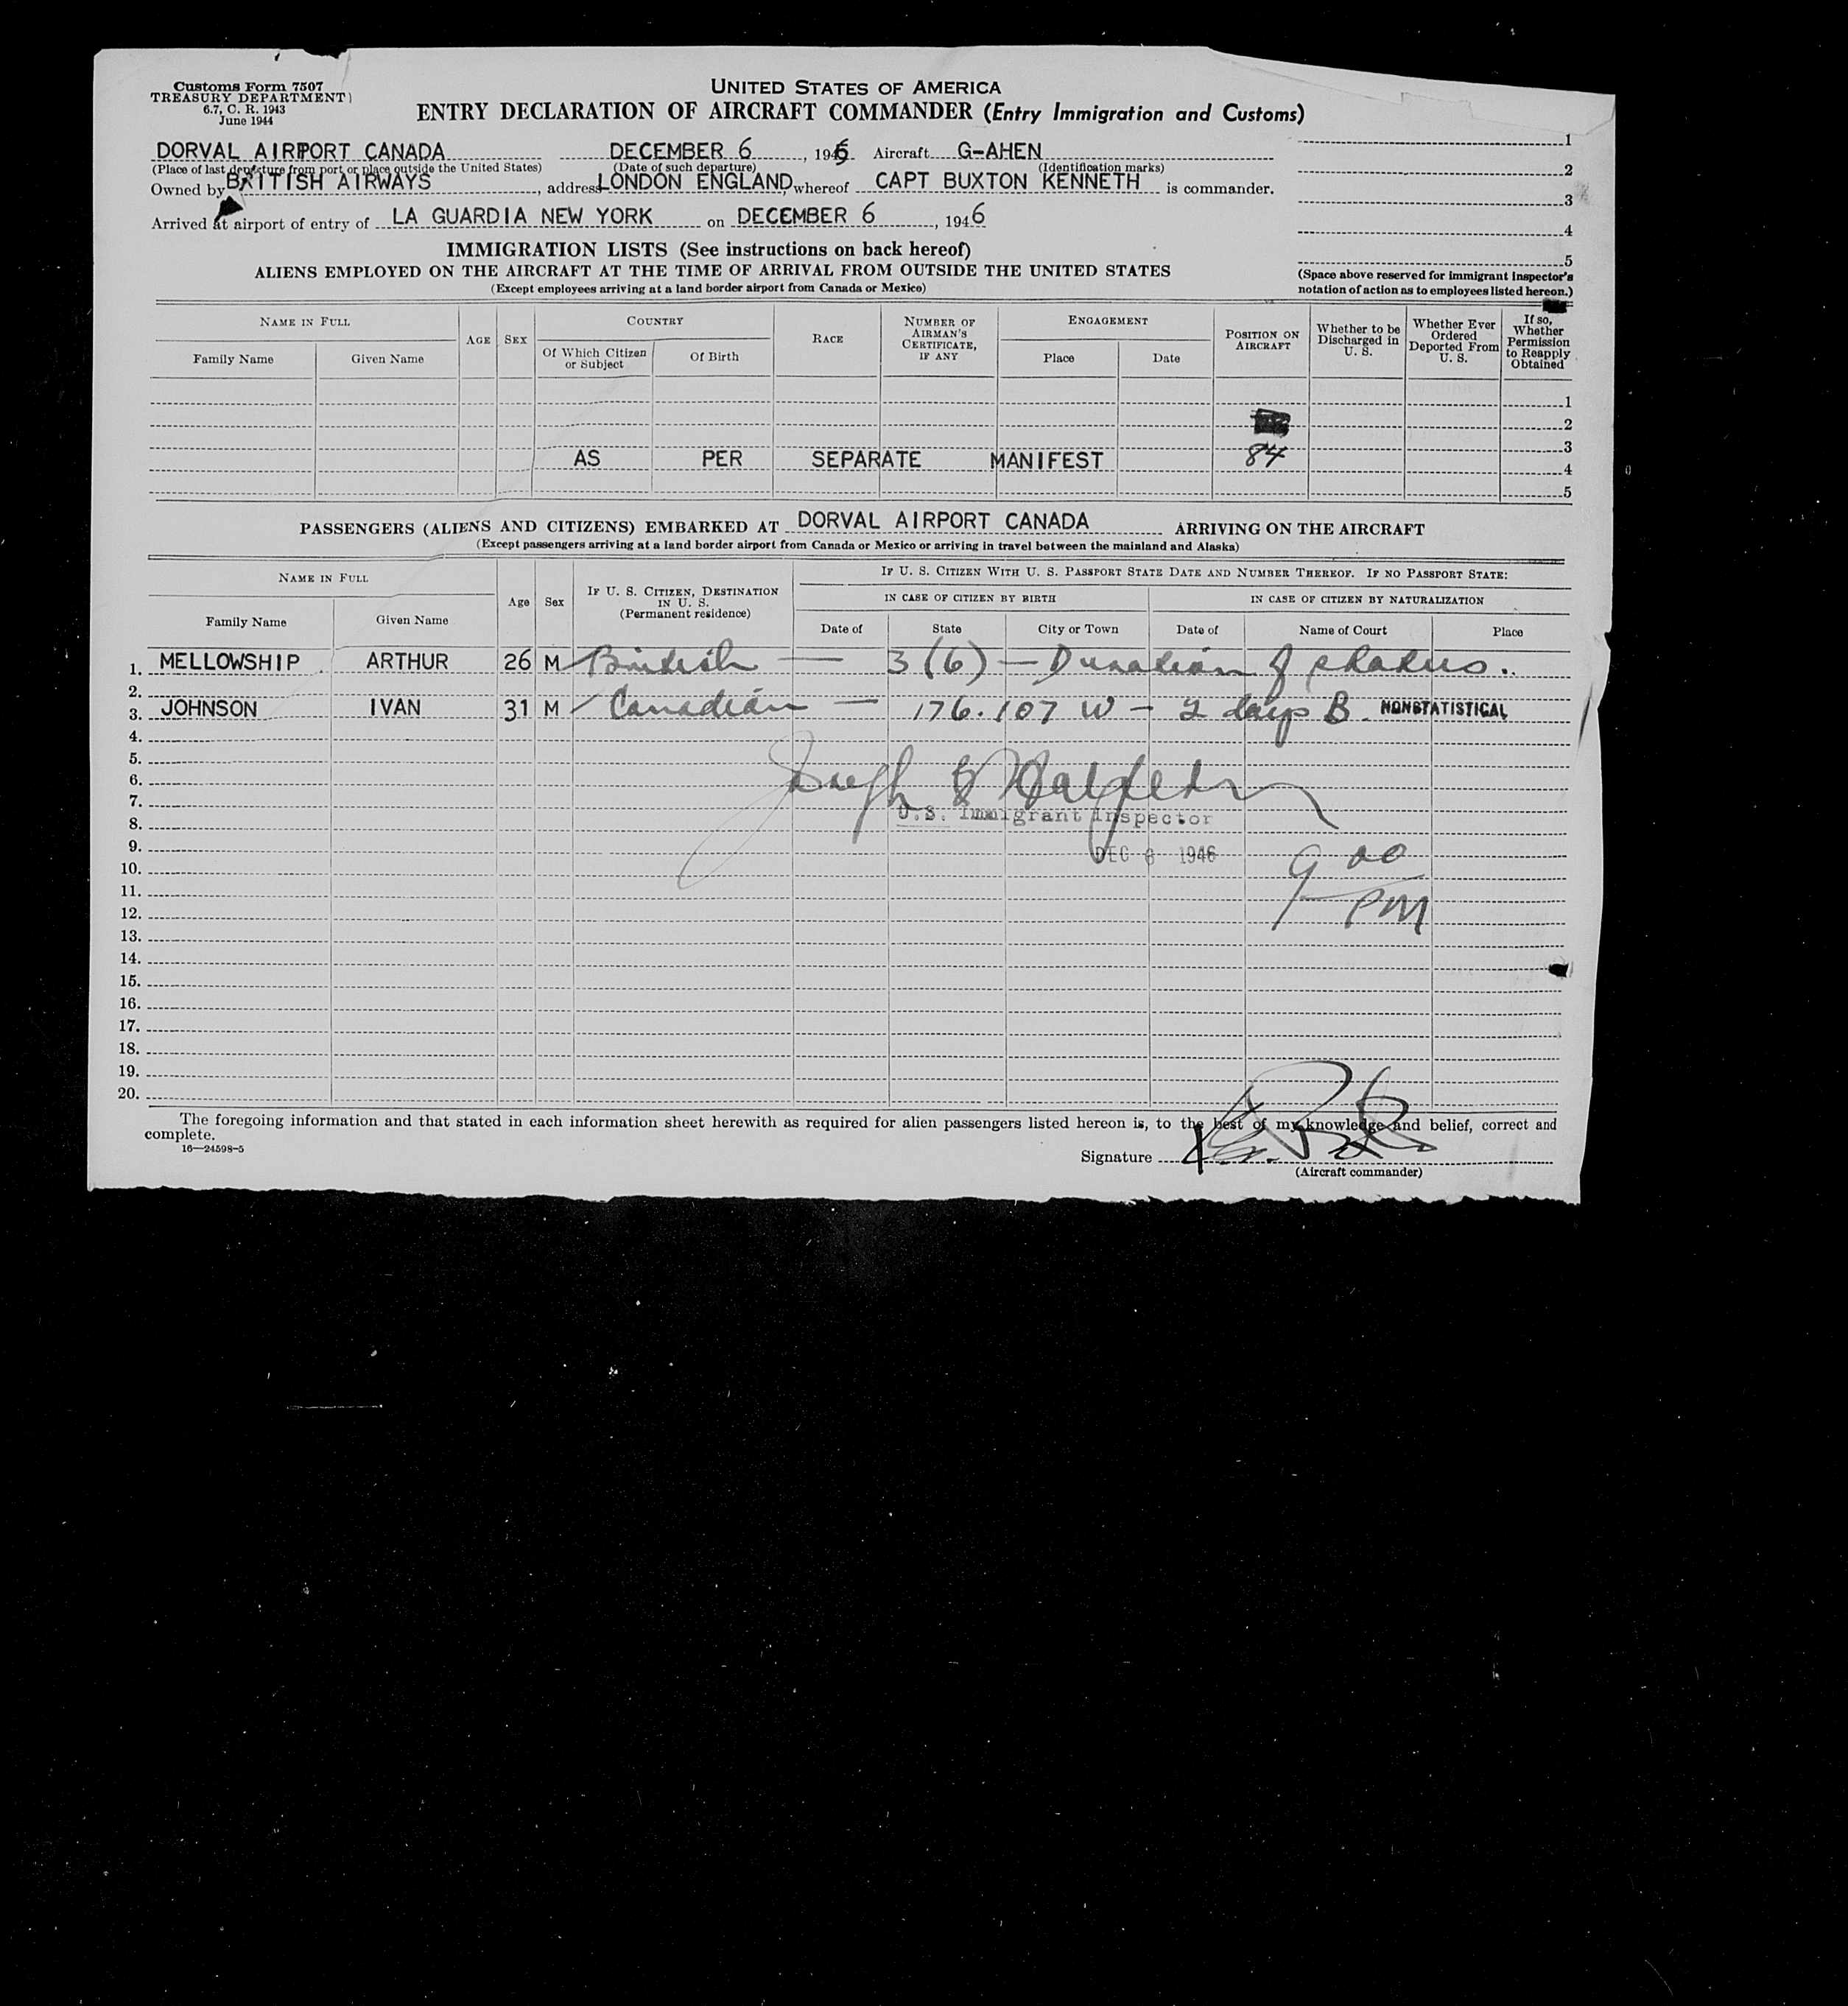 Customs Form 7507
TREASURY DEPARTMENT
6.7, C. R. 1943
June 1944
UNITED STATES OF AMERICA
ENTRY DECLARATION OF AIRCRAFT COMMANDER (Entry Immigration and Customs)
DORVAL AIRPORT CANADA DECEMBER 6, 1946 Aircraft G-AHEN
(Place of last departure from port or place outside the United States) (Date of such departure) (Identification marks)
Owned by BRITISH AIRWAYS, address LONDON ENGLAND, whereof CAPT BUXTON KENNETH is commander.
Arrived at airport of entry of LA GUARDIA NEW YORK on DECEMBER 6, 1946
1
2
3
4
5
(Space above reserved for immigrant inspector's
notation of action as to employees listed hereon.)
IMMIGRATION LISTS (See instructions on back hereof)
ALIENS EMPLOYED ON THE AIRCRAFT AT THE TIME OF ARRIVAL FROM OUTSIDE THE UNITED STATES
(Except employees arriving at a land border airport from Canada or Mexico)
NAME IN FULL
Family Name Given Name
AGE SEX
COUNTRY
Of Which Citizen or Subject Of Birth
RACE
NUMBER OF AIRMAN'S CERTIFICATE, IF ANY
ENGAGEMENT
Place Date
POSITION ON AIRCRAFT
Whether to be Discharged in U. S.
Whether Ever Ordered Deported From U. S.
If so, Whether Permission to Reapply Obtained
1
2
3
AS PER SEPARATE MANIFEST 84 4
5
PASSENGERS (ALIENS AND CITIZENS) EMBARKED AT DORVAL AIRPORT CANADA ARRIVING ON THE AIRCRAFT
(Except passengers arriving at a land border airport from Canada or Mexico or arriving in travel between the mainland and Alaska)
NAME IN FULL
Family Name Given Name
Age Sex
IF U. S. CITIZEN, DESTINATION IN U. S.
(Permanent residence)
IF U. S. CITIZEN WITH U. S. PASSPORT STATE DATE AND NUMBER THEREOF. IF NO PASSPORT STATE:
IN CASE OF CITIZEN BY BIRTH IN CASE OF CITIZEN BY NATURALIZATION
Date of State City or Town Date of Name of Court Place
1. MELLOWSHIP ARTHUR 26 M British — 3 (6) — Duration of status.
2.
3. JOHNSON IVAN 31 M Canadian — 176.107 W — 2 days B. NONSTATISTICAL
4.
5.
6. Joseph
7.
8. U.S. Immigrant Inspector
9. DEC 6 1946 9 00
10.
11. PM
12.
13.
14.
15.
16.
17.
18.
19.
20.
The foregoing information and that stated in each information sheet herewith as required for alien passengers listed hereon is, to the best of my knowledge and belief, correct and
complete.
16—24598-5
Signature
(Aircraft commander)